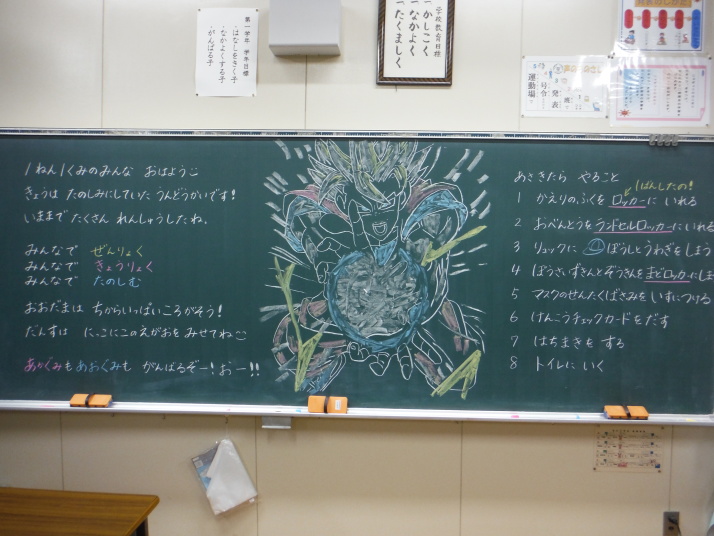 第一学年 学年目標
・はなしをきく子
・なかよくする子
・がんばる子
学校教育目標
一かしこく
一なかよく
一たくましく
運動場
号令
発表
1ねん1くみのみんな おはよう
きょうは たのしみにしていた うんどうかいです!
いままで たくさん れんしゅうしたね。
みんなで ぜんりょく
みんなで きょうりょく
みんなで たのしむ
おおだまは ちからいっぱいころがそう!
だんすは にこにこのえがおを みせてね
あかぐみもあおぐみも がんばるぞー!おー!!
あさきたら やること
1 かえりのふくを ロッカーに いれる
いぱんしたの!
2 おべんとうを ランドセルロッカーにいれる
3 リュックに ぼうしとうわぎを しまう
4 ぼうさいずきんとぞうきんを まどロッカーにしま
5 マスクのせんたくばさみを いすにつける
6 けんこうチェックカードを だす
7 はちまきを する
8 トイレに いく